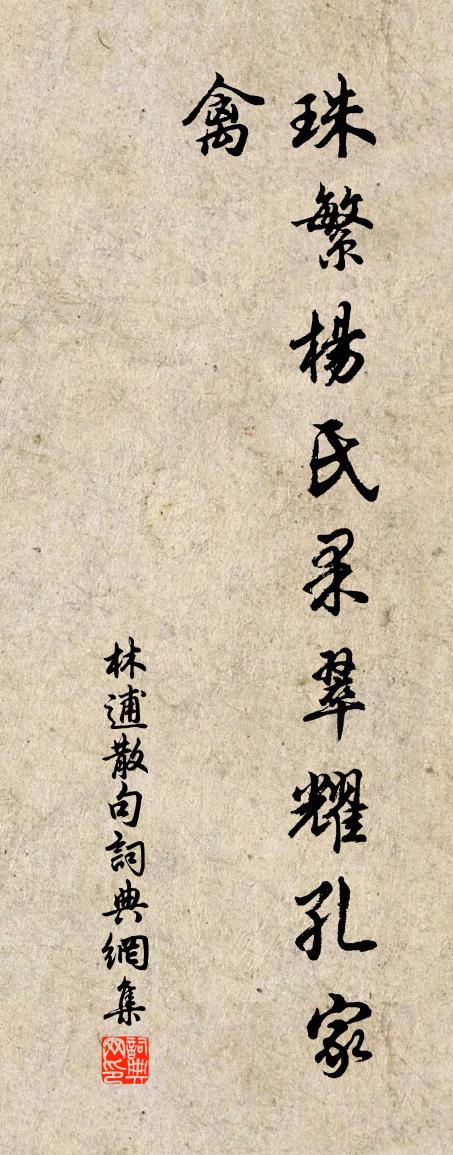 珠繁楊氏果翠耀孔家
禽
林逋散句詞典網集
詞典網印